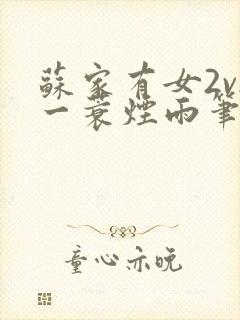 蘇家有女2v
一蓑煙雨筆
童心亦晚